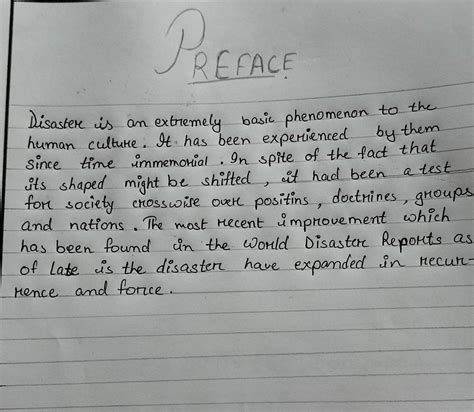 PREFACE
Disaster is an extremely basic phenomenon to the
human culture. It has been experienced by them
since time immemorial. In spite of the fact that
its shaped might be shifted, it had been a test
for society crosswise over positins, doctrines, groups
and nations. The most recent improvement which
has been found in the World Disaster Reports as
of late is the disaster have expanded in recur-
rence and force.